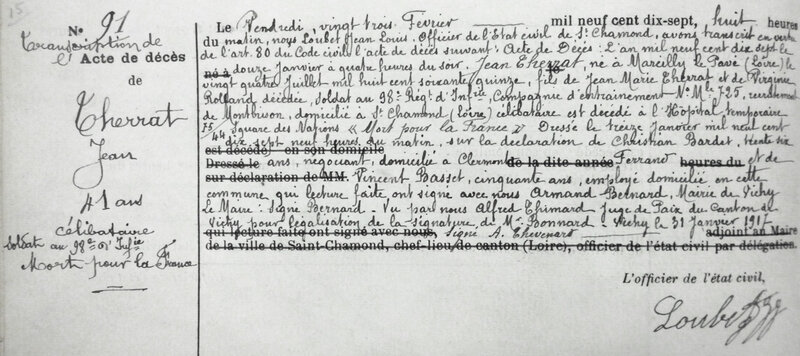 15
N.o 91
Transcription de
l'Acte de décès
de
Therrat
Jean
41 ans
Célibataire
Soldat au 98e d'Infie
Mort pour la France
Le Vendredi, vingt trois Fevrier mil neuf cent dix-sept, huit heures
du matin, nous Loubet Jean Louis, Officier de l'Etat civil de St Chamond, avons transcrit en vertu
de l'art. 80 du Code civil l'acte de décès suivant : Acte de Décès : L'an mil neuf cent dix sept le
né à douze Janvier à quatre heures du soir, Jean Eherrat, né à Marcilly le Pavé (Loire) le
vingt quatre Juillet mil huit cent soixante quinze, fils de Jean Marie Eherrat et de Virginie
Rolland décédée, Soldat au 98e Régt d'Infie, Compagnie d'entrainement No Mle 725, recrutement
de Montbrison, domicilié à St Chamond (Loire) célibataire est décédé à l'Hôpital temporaire
75/44 Square des Nations « Mort pour la France » Dressé le treize Janvier mil neuf cent
dix sept neuf heures du matin, sur la declaration de Christian Bardet, trente six
est décédé en son domicile
Dressé le ans, négociant, domicilié à Clermont de la dite année Ferrand heures du et de
sur déclaration de MM. Vincent Basset, cinquante ans, employé domicilié en cette
commune qui lecture faite ont signé avec nous Armand Bernard, Mairie de Vichy
Le Maire : Signé Bernard - Vu par nous Alfred Ehimard Juge de Paix du Canton de
Vichy pour légalisation de la Signature de Mr Bonnard - Vichy le 31 Janvier 1917
qui lecture faite ont signé avec nous, Signé A. Ehevenard adjoint au Maire
de la ville de Saint-Chamond, chef-lieu de canton (Loire), officier de l'état civil par délégation.
L'officier de l'état civil,
Loubet